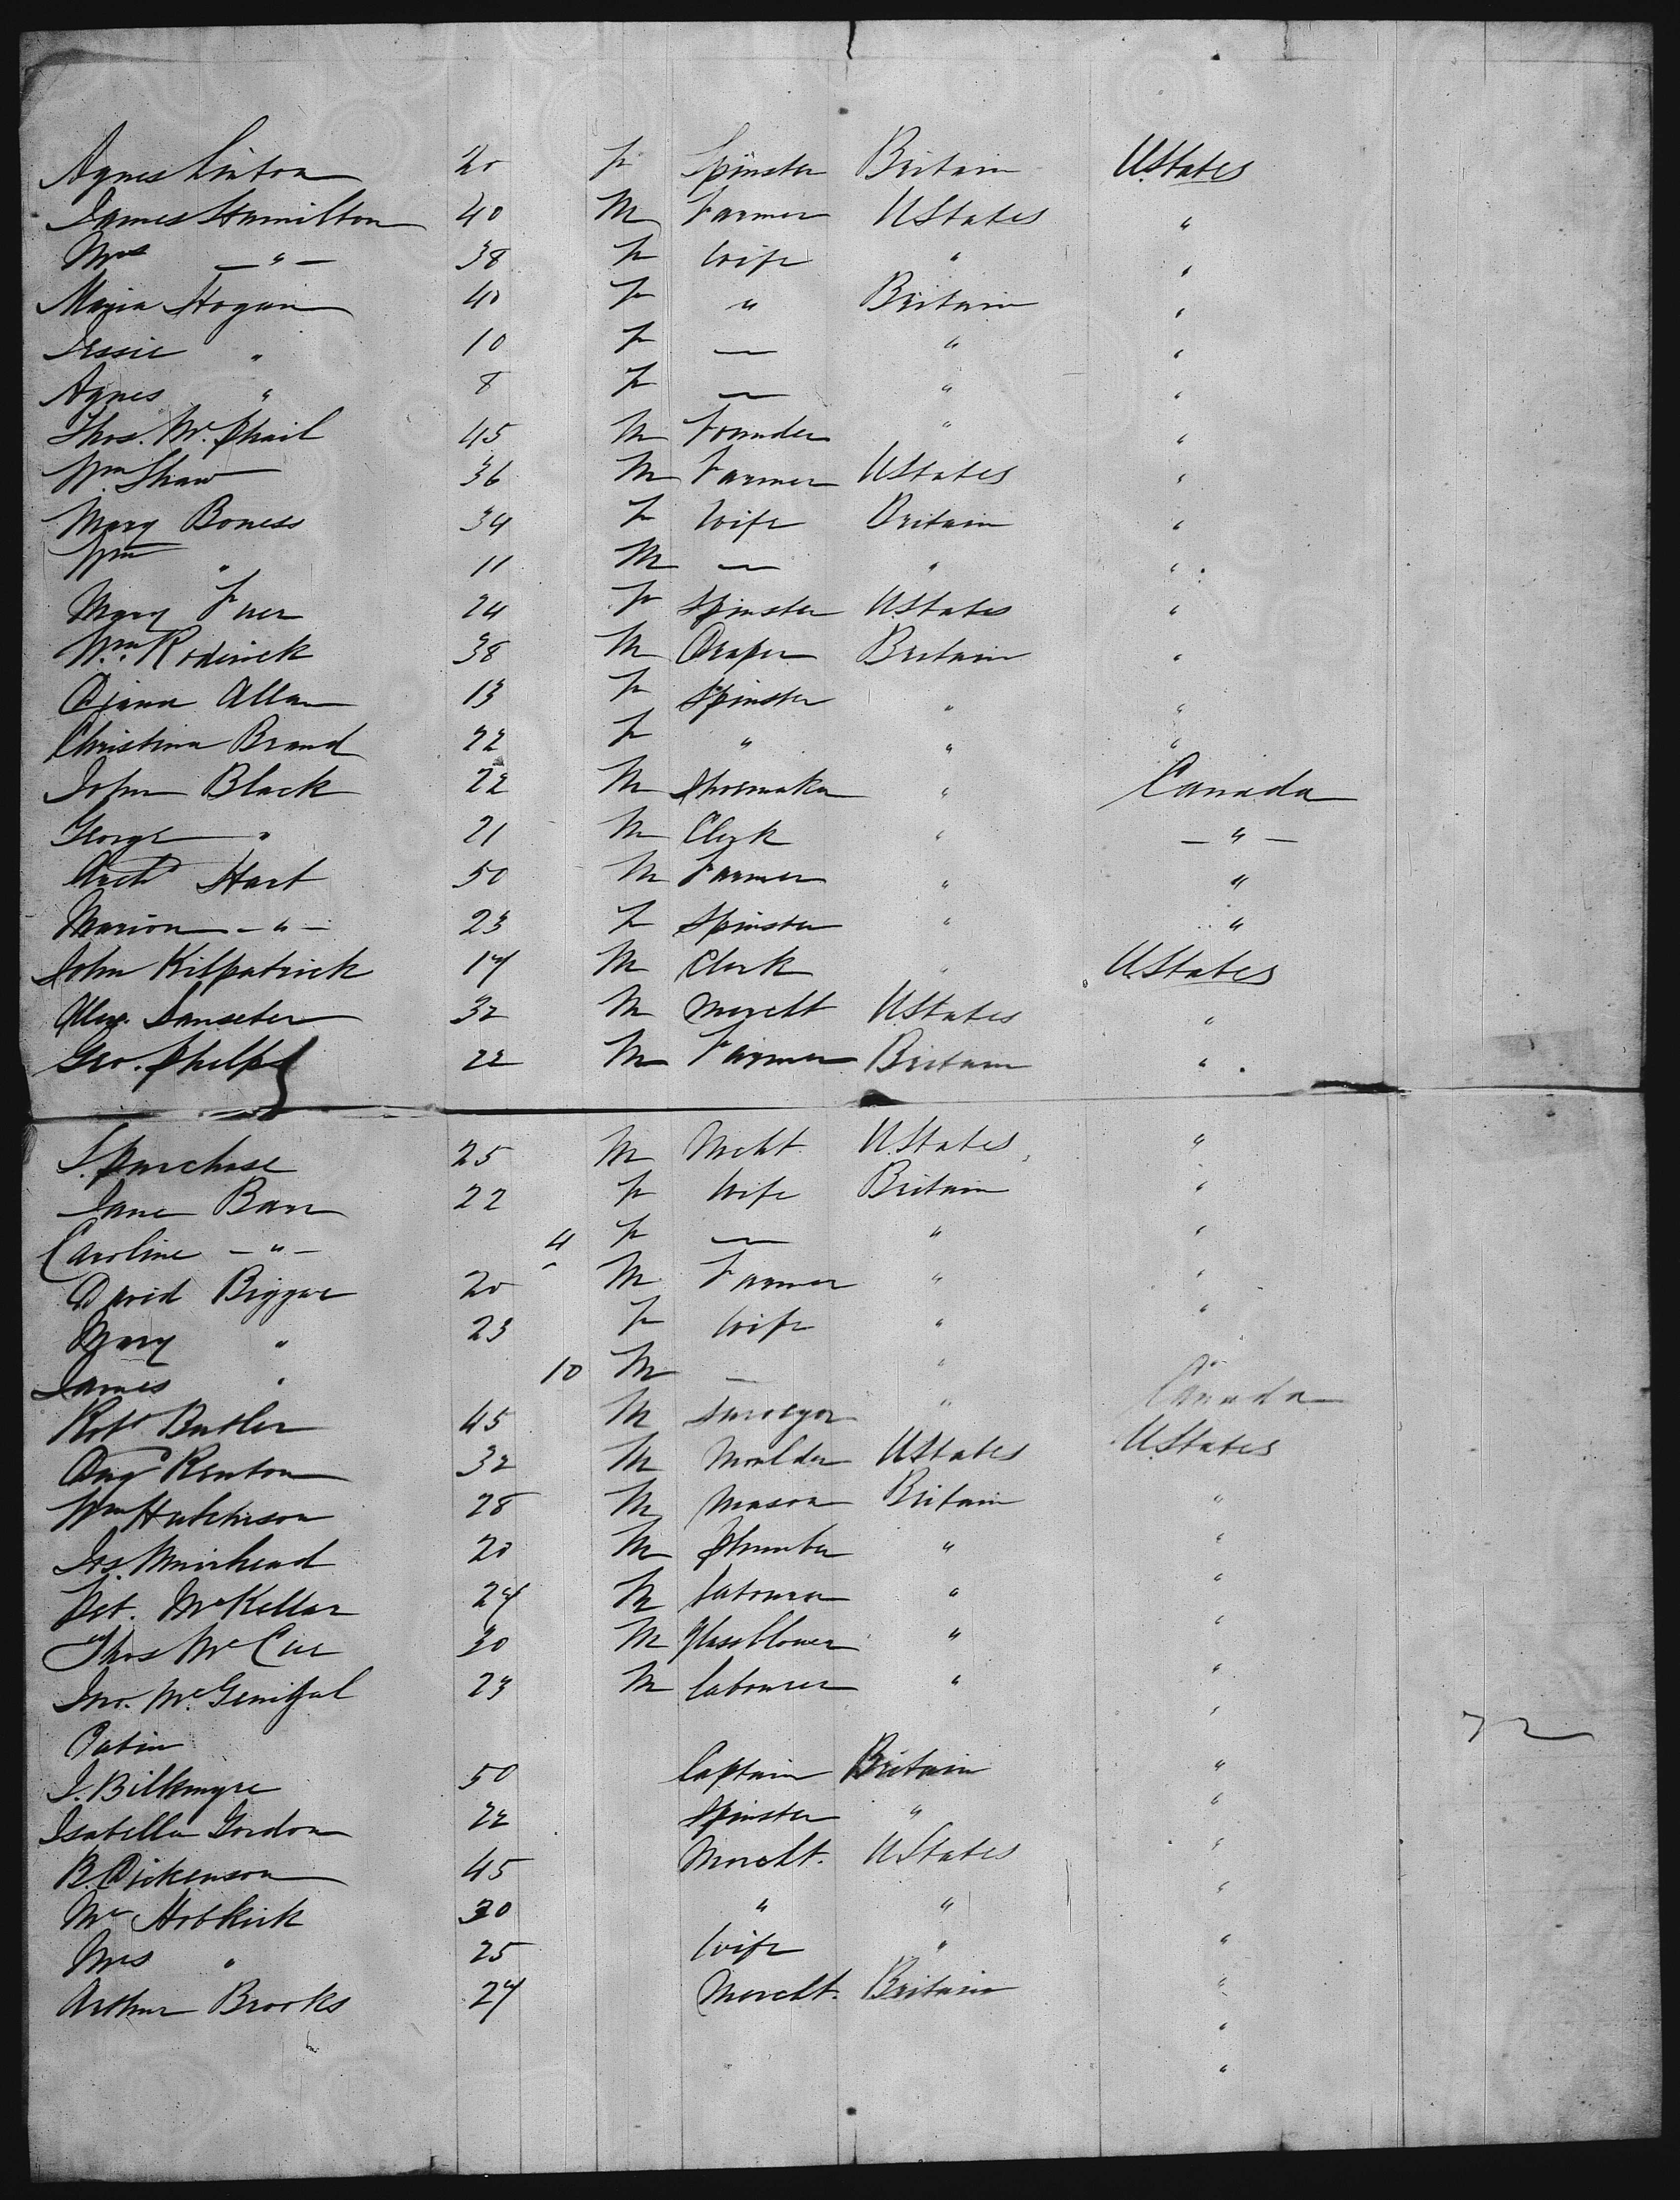 Agnes Linton 20 F Spinster Britain U.States
James Hamilton 40 M Farmer U States "
Mrs — " — 38 F Wife " "
Maria Hogan 40 F " Britain "
Jessie " 10 F — " "
Agnes " 8 F — " "
Thos. Mc.Phail 45 M Founder " "
Wm Shaw 36 M Farmer U States "
Mary Boness 34 F Wife Britain "
Wm " 11 M — " "
Mary 24 F Spinster U States "
Wm. Roderick 38 M Draper Britain "
Diana Allan 13 F Spinster " "
Christina Brand 22 F " " "
John Black 22 M Shoemaker " Canada
George " 21 M Clerk " — " —
Archd Hart 50 M Farmer " "
Marion — " — 23 F Spinster " "
John Kilpatrick 17 M Clerk " U.States
Alexr. 32 M Mercht U States "
Geo. Phelps 22 M Farmer Britain "
S. Purchase 25 M Mcht. U.States "
Jane Barr 22 F Wife Britain "
Caroline — " — 4 F — " "
David Biggar 20 M Farmer " "
Mary " 23 F Wife " "
James " 10 M — "
Robt Butler 45 M Surveyor " Canada
Renton 32 M Moulder U States U.States
Wm Hutchison 28 M Mason Britain "
Jas. Muirhead 20 M Plumber " "
Pet. McKellar 27 M Labourer " "
Thos Mc Cue 30 M Glassblower " "
Jno. Mc. 23 M Labourer " "
Cabin "
72
50 Captain Britain "
Isabella Gordon 22 Spinster " "
B. Dickenson 45 Mercht. U States "
Mr Hobkirk 30 " " "
Mrs " 25 Wife " "
Arthur Brooks 27 Mercht. Britain "
"
"